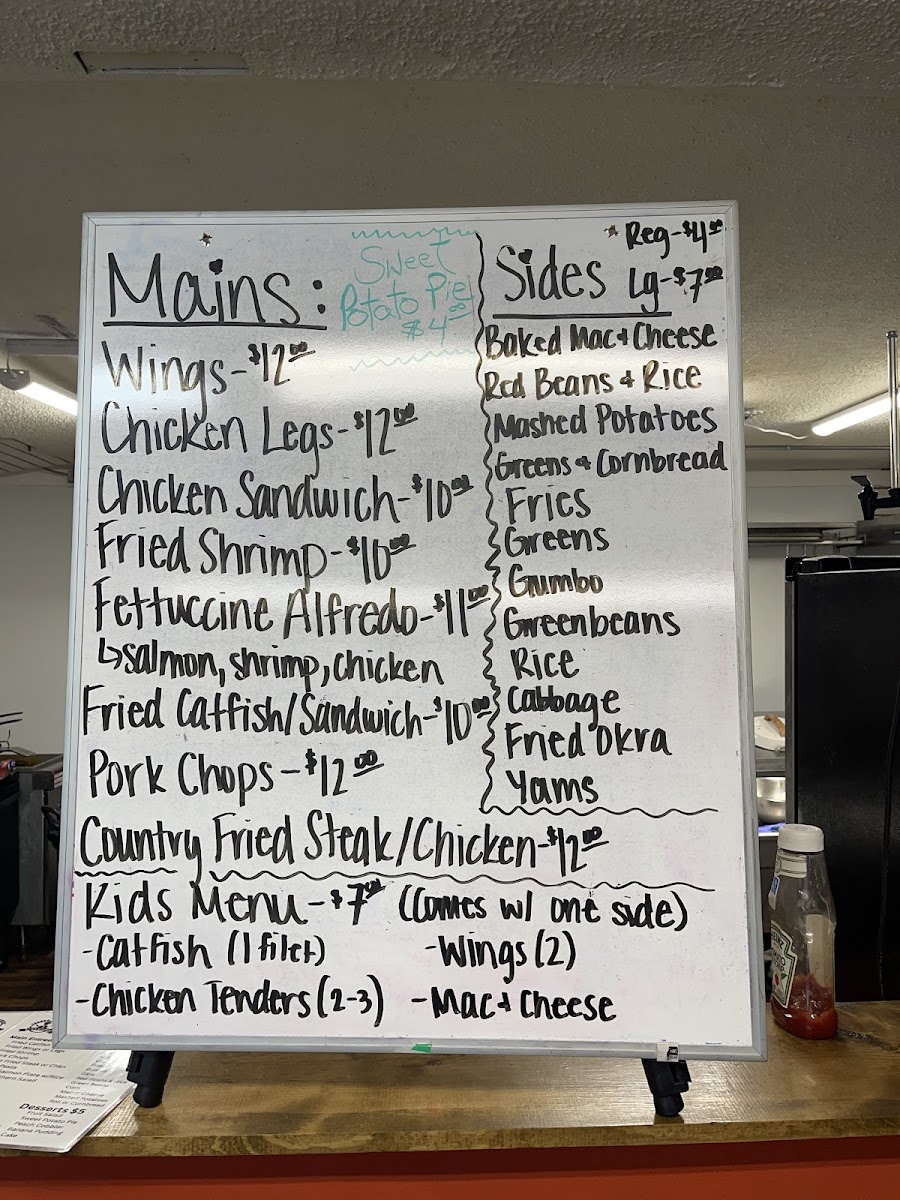 Mains:
Sweet
Potato Pie
$4.00
Wings-$12.00
Chicken Legs-$12.00
Chicken Sandwich-$10.00
Fried Shrimp-$10.00
Fettuccine Alfredo-$11.00
↳salmon, shrimp, chicken
Fried Catfish/Sandwich-$10.00
Pork Chops-$12.00
Sides
Reg-$4.00
Lg-$7.00
Baked Mac & Cheese
Red Beans & Rice
Mashed Potatoes
Greens & Cornbread
Fries
Greens
Gumbo
Greenbeans
Rice
Cabbage
Fried Okra
Yams
Country Fried Steak/Chicken-$12.00
Kids Menu-$7.00 (Comes w/ one side)
-Catfish (1 filet)
-Wings (2)
-Chicken Tenders (2-3)
-Mac & Cheese
HEINZ
Main Entree
Desserts $5
Fruit Salad
Sweet Potato Pie
Peach Cobbler
Banana Pudding
Cake